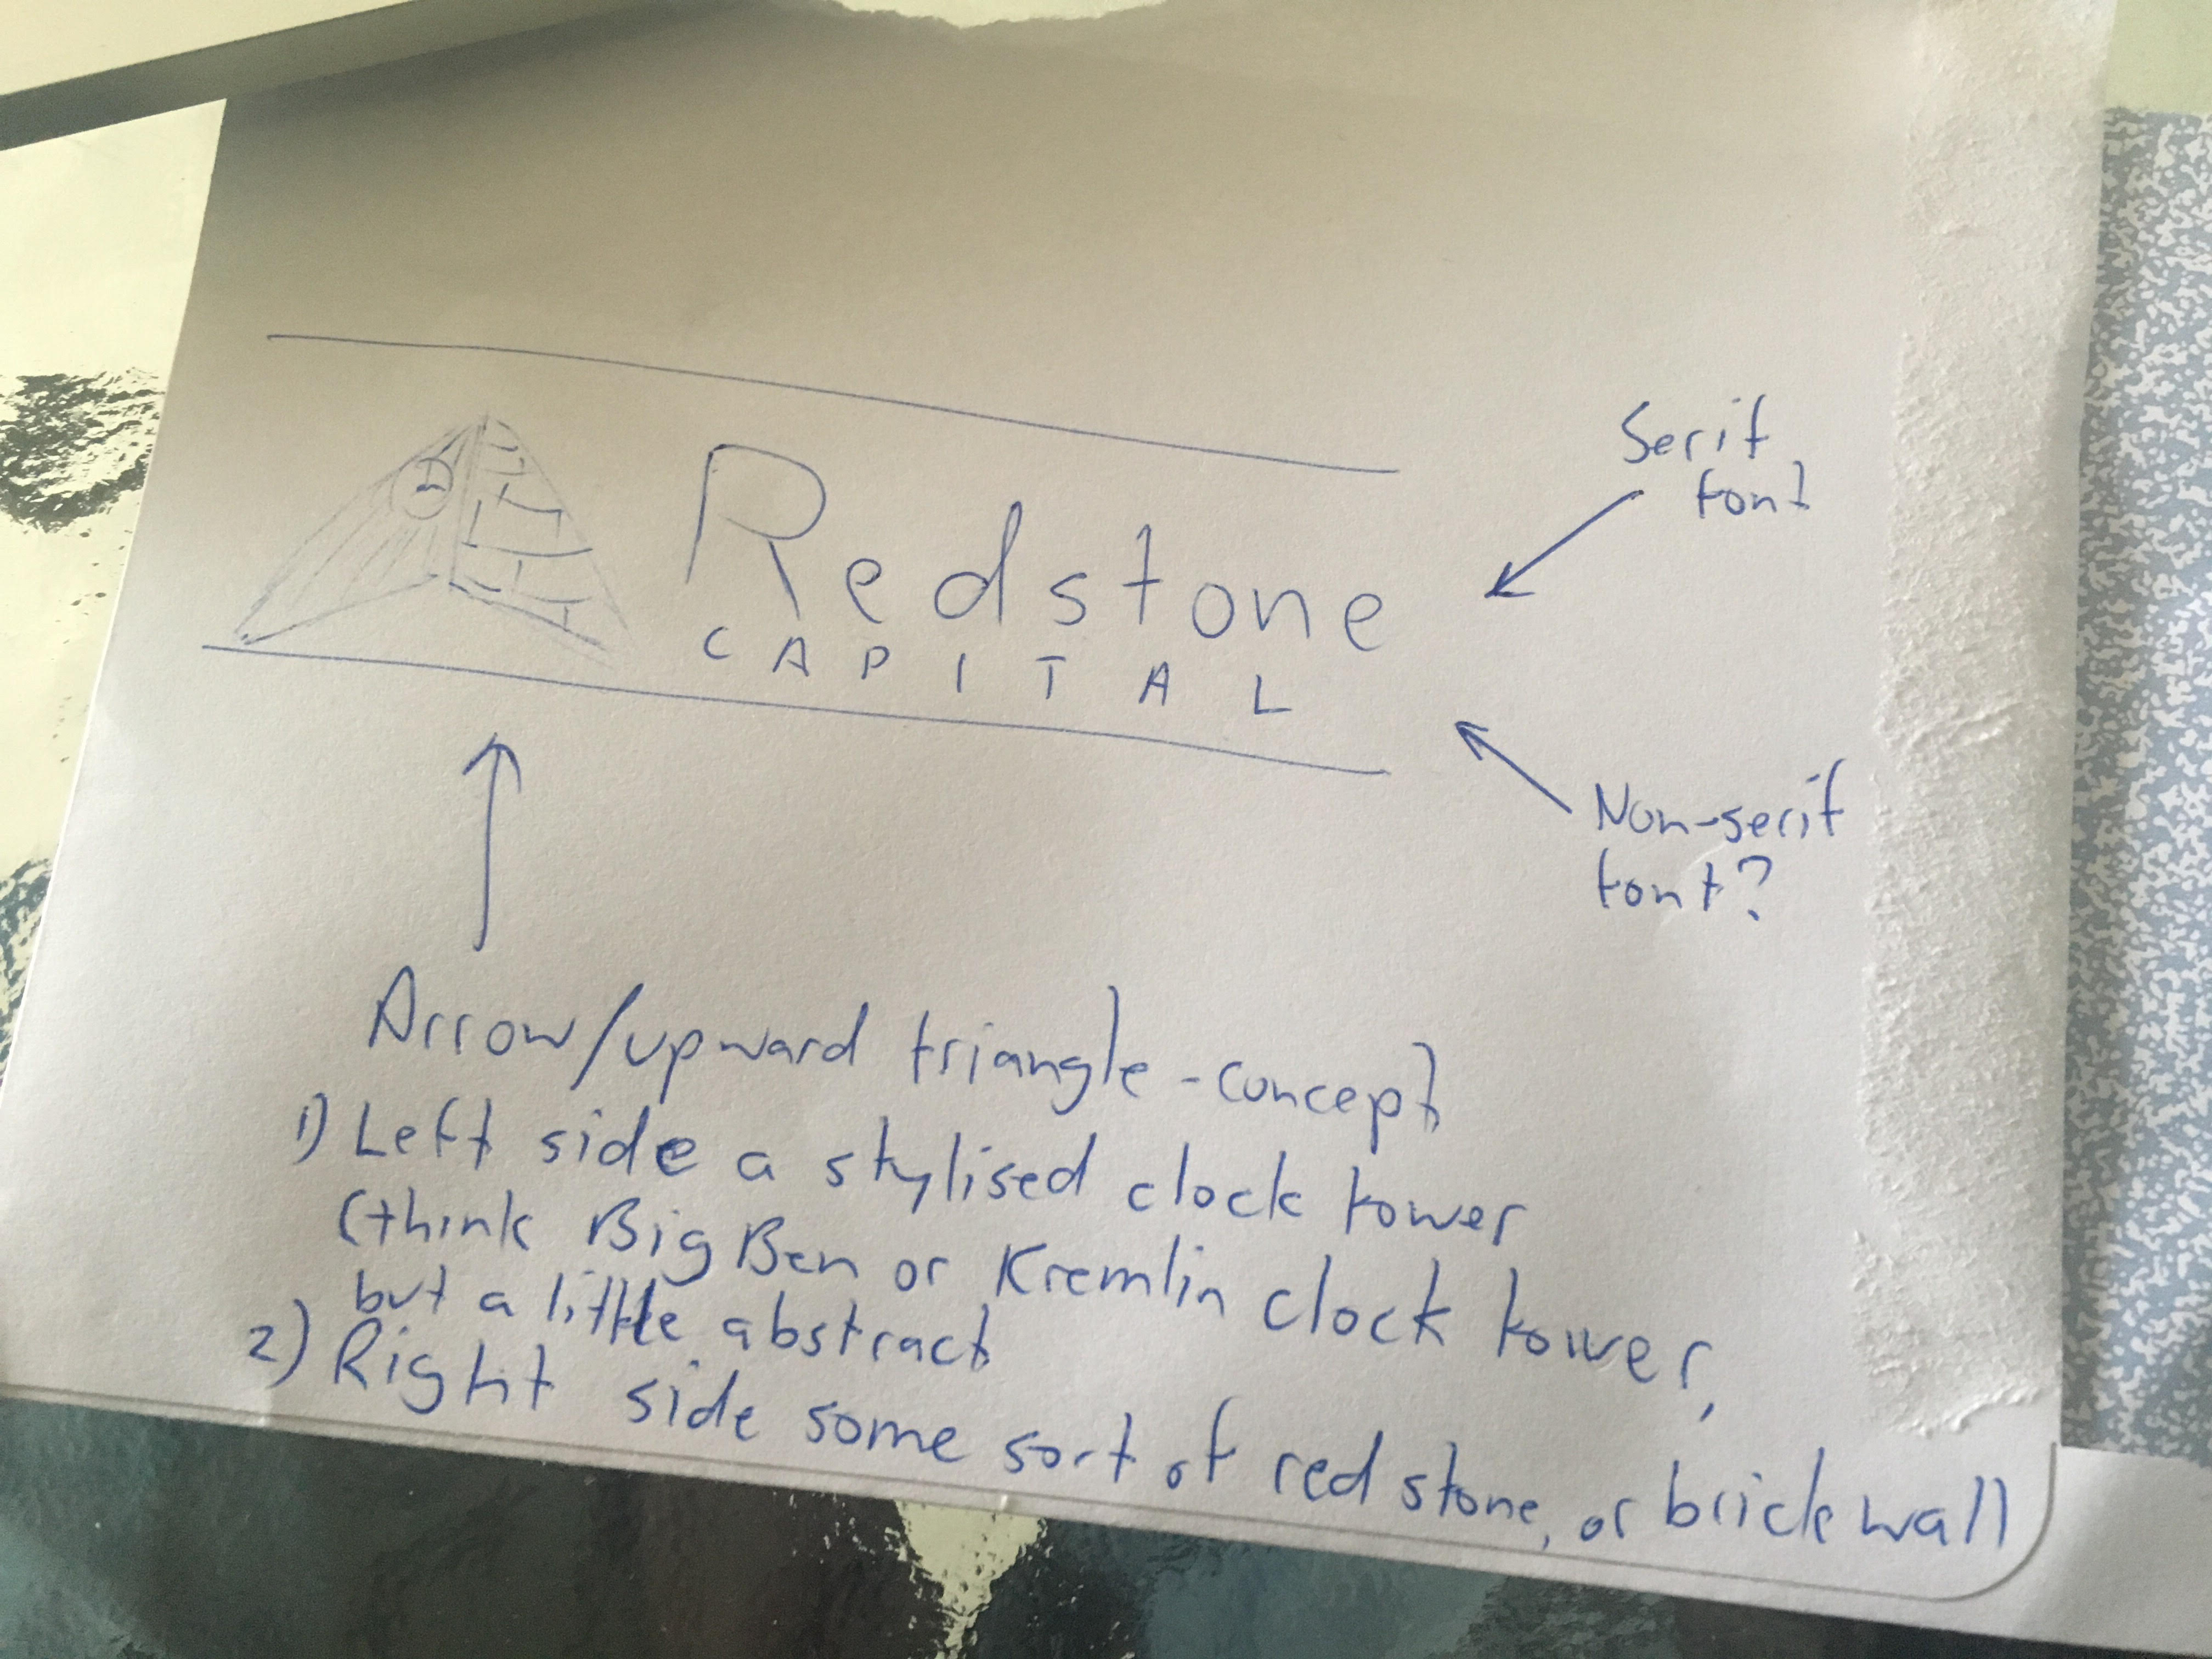 Redstone
CAPITAL
Serif
font
Non-serif
font?
Arrow/upward triangle-concept
1) Left side a stylised clock tower
(think Big Ben or Kremlin clock tower,
but a little abstract
2) Right side some sort of red stone, or brick wall